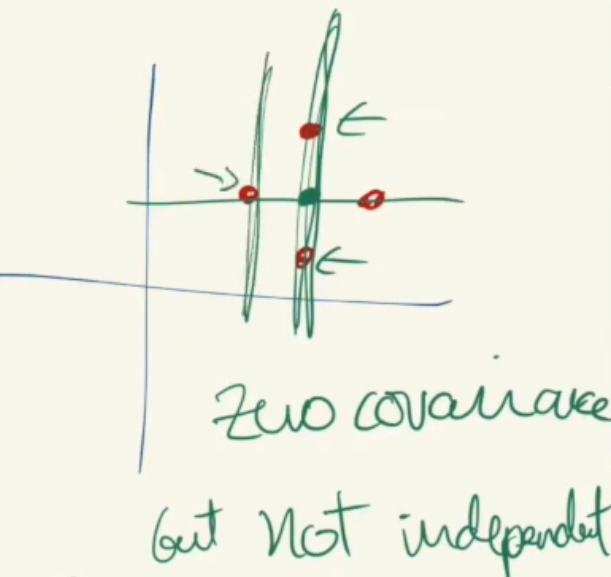 Zero covariance
but Not independent